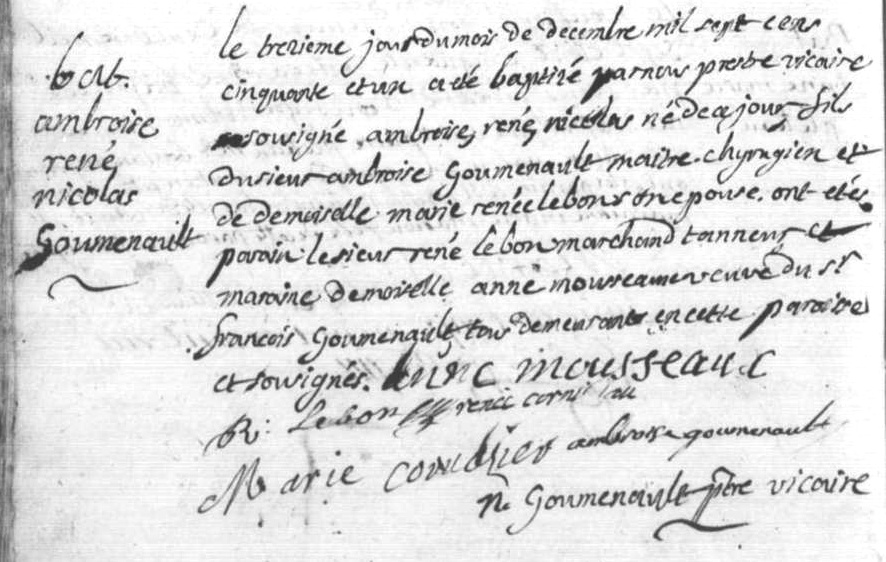 bat.
ambroise
rené
nicolas
Goumenault
le trezieme jour du mois de decembre mil sept cens
cinquante et un a eté baptisé par nous prestre vicaire
sousigné, ambroise, rené, nicolas né de ce jour, fils
du sieur ambroise Goumenault maitre chyrugien et
de demoiselle marie renée lebon son epouse. ont etés
parain le sieur rené lebon marchand tanneur et
maraine demoiselle anne mousseau veuve du sr
françois Goumenault, tous demeurants en cette paroisse
et sousignés. anne mousseaux
R: Lebon renée
Marie ambroise goumenault
n. Goumenault ptre vicaire